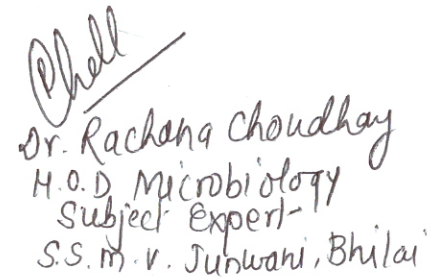 Dr. Rachana Choudhay
H.O.D Microbiology
Subject Expert
S.S.M.V. Junwani, Bhilai